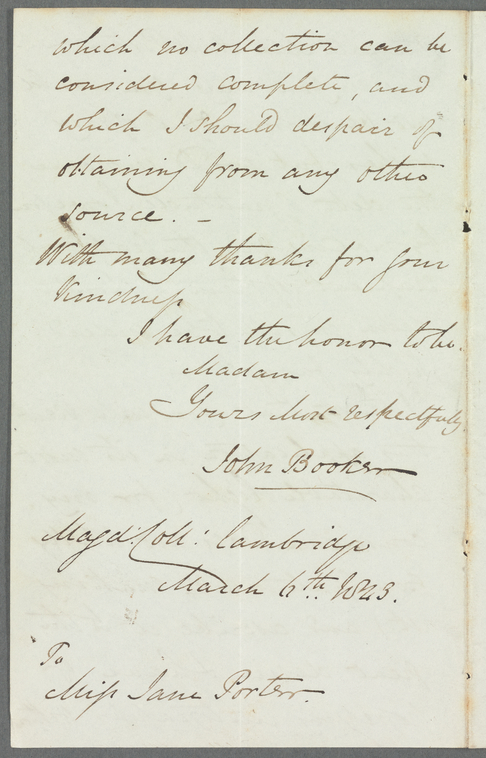 which no collection can be
considered complete, and
which I should despair of
obtaining from any other
source. –
With many thanks for your
kindness
I have the honor to be.
Madam
Yours most respectfully
John Booker
Magd. Coll: Cambridge
March 6th. 1843.
To
Miss Jane Porter.